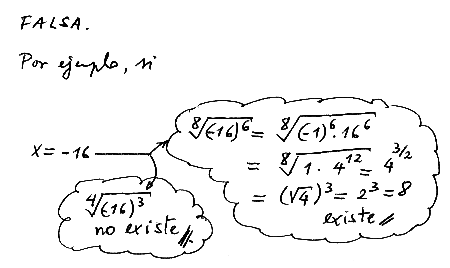 FALSA.
Por ejemplo, si
x = -16
⁸√(-16)⁶ = ⁸√(-1)⁶·16⁶
= ⁸√1·4¹² = 4^3/2
= (√4)³ = 2³ = 8
existe //
⁴√(-16)³
no existe //.